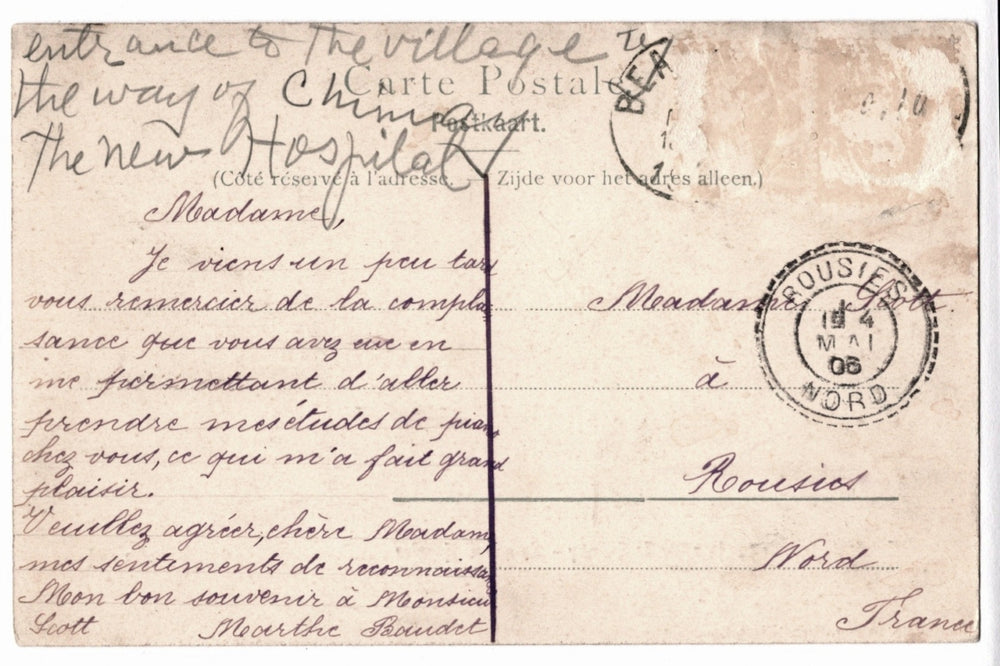 entrance to the village
the way of Chimay
The new Hospital
Carte Postale
Postkaart.
(Côté réservé à l'adresse. — Zijde voor het adres alleen.)
BEA
Madame,
Je viens un peu tard
vous remercier de la complai
sance que vous avez eue en
me permettant d'aller
prendre mes études de piano
chez vous, ce qui m'a fait grand
plaisir.
Veuillez agréer, chère Madame,
mes sentements de reconnaissance
Mon bon souvenir à Monsieur
Scott Marthe Baudet
Madame Scott
à
Rousies
Nord
France
ROUSIES
4
MAI
06
NORD